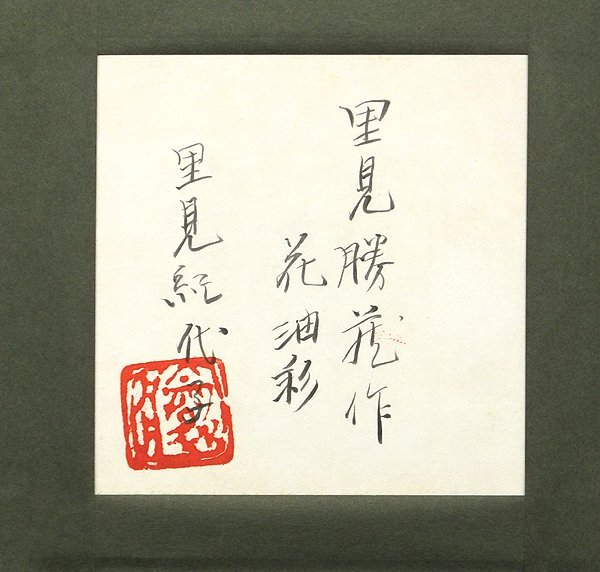 里見勝蔵作
花油彩
里見紀代子